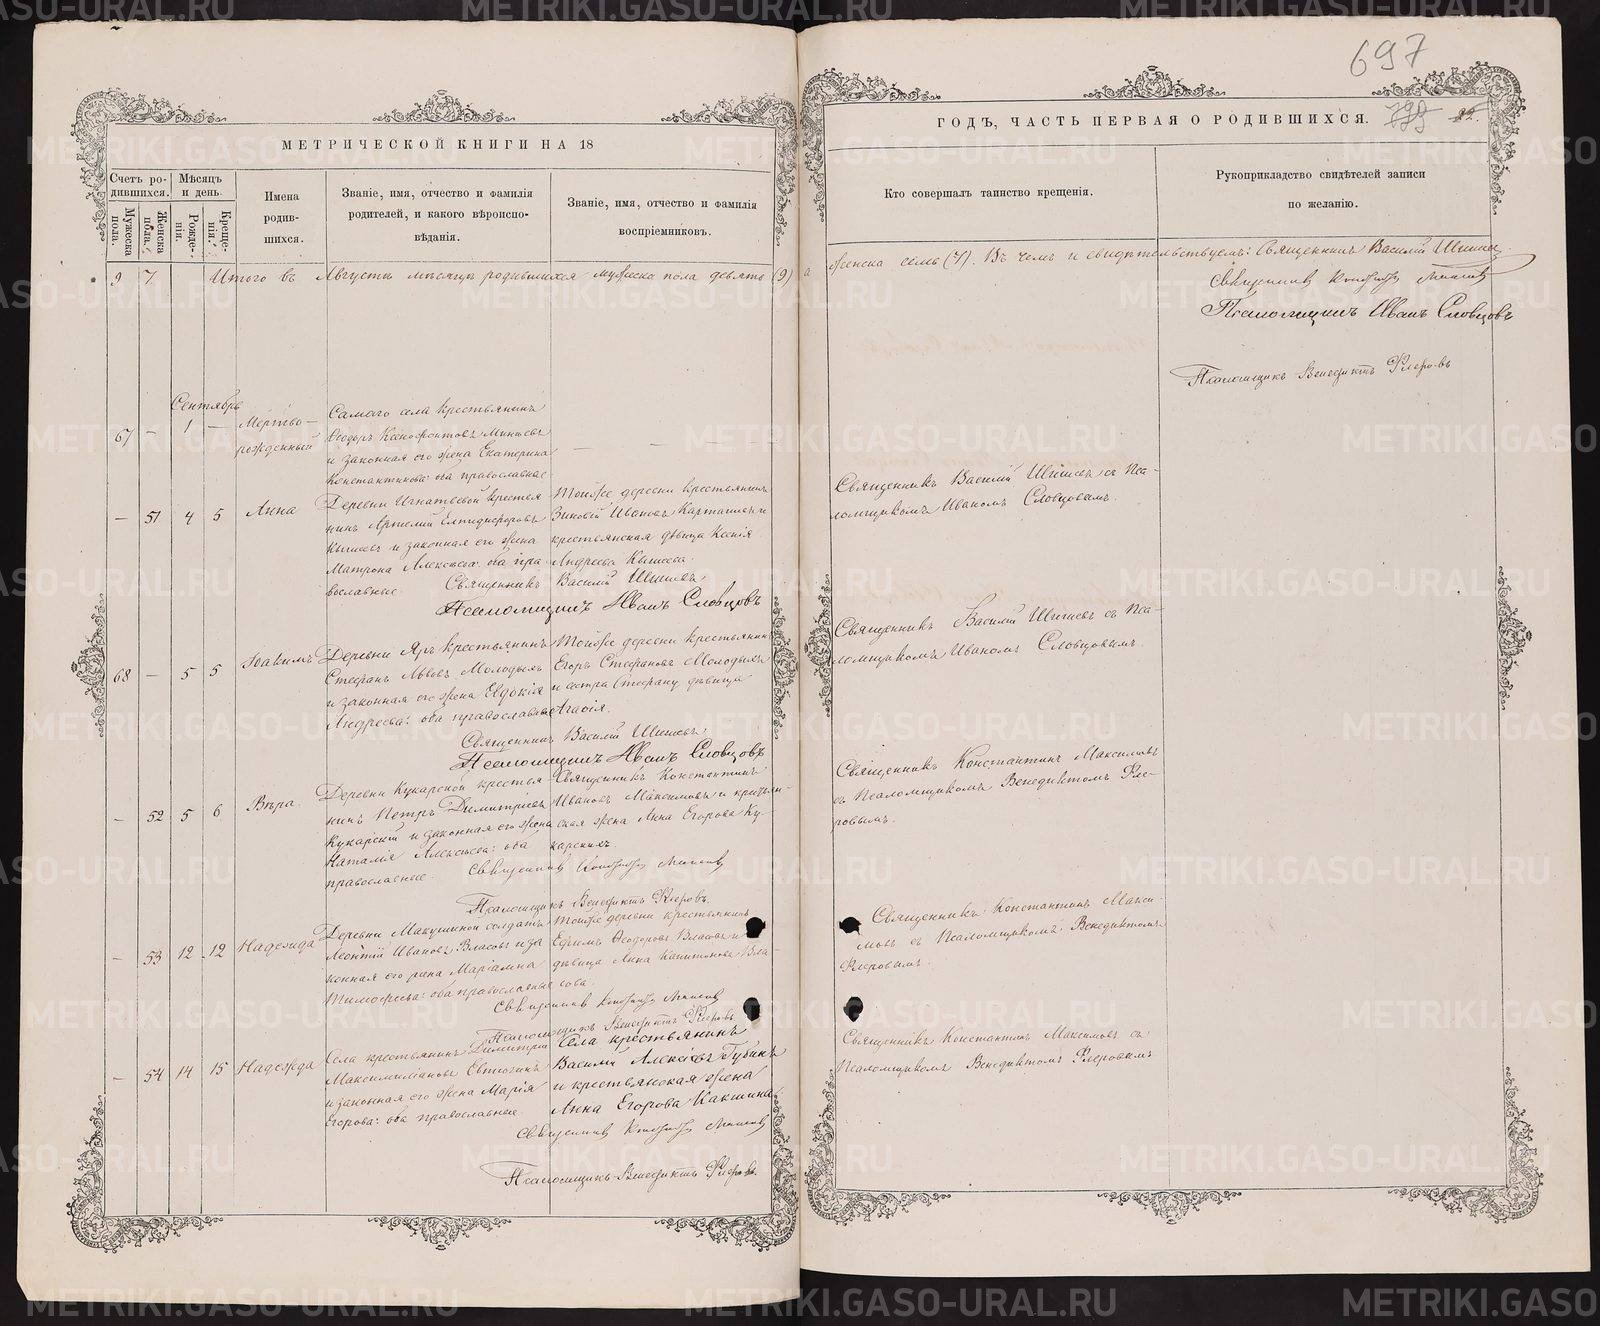 697
МЕТРИЧЕСКОЙ КНИГИ НА 18
Счетъ ро-
дившихся.
Мужеска
пола.
Женска
пола.
Мѣсяцъ
и день.
Рожде-
нія.
Креще-
нія.
Имена
родив-
шихся.
Званіе, имя, отчество и фамилія
родителей, и какого вѣроиспо-
вѣданія.
Званіе, имя, отчество и фамилія
воспріемниковъ.
9 7 Итого въ Августѣ мѣсяцѣ родившихся мужеска пола девять (9) а
Сентябрь
67 — 1 — Мертво-
рожденный
Самаго села крестьянинъ
Ѳеодоръ Ксенофонтовъ
и законная его жена Екатерина
Константинова: оба православные
— 51 4 5 Анна
Деревни Игнатьевой крестья
нинъ
и законная его жена
Матрона Алексѣева: оба пра
вославные.
Тойже деревни крестьянинъ
Зиновій Ивановъ и
крестьянская дѣвица Ксенія
Андреева
Священникъ Василій
Псаломщикъ Иванъ Словцовъ
68 — 5 5 Іоакимъ
Деревни Яръ крестьянинъ
Стефанъ Львовъ Молодыхъ
и законная его жена Евдокія
Андреева: оба православные
Тойже деревни крестьянинъ
Егоръ Стефановъ Молодыхъ
и сестра Стефану дѣвица
Агафія.
Священникъ Василій
Псаломщикъ Иванъ Словцовъ
— 52 5 6 Вѣра.
Деревни Кукарской крестья-
нинъ Петръ Димитріевъ
Кукарскій и законная его жена
Наталія Алексѣева: оба
православные.
Священникъ Константинъ
Ивановъ Максимовъ и крестьян-
ская жена Анна Егорова Ку-
карскихъ.
Священникъ
Псаломщикъ Венедиктъ Флеровъ.
— 53 12 12 Надежда
Деревни Макушиной солдатъ
Леонтій Ивановъ Власовъ и за
конная его жена Маріамна
Тимофеева: оба православные
Тойже деревни крестьянинъ
Ефимъ Ѳеодоровъ Власовъ и
дѣвица Анна Капитонова Вла-
сова.
Священникъ
Псаломщикъ Венедиктъ Флеровъ
— 54 14 15 Надежда
Села крестьянинъ Димитрій
Максимиліановъ
и законная его жена Марія
Егорова: оба православные.
Села крестьянинъ
Василій Алексѣевъ Губинъ
и крестьянская жена
Анна Егорова
Священникъ
Псаломщикъ Венедиктъ Флеровъ.
ГОДЪ, ЧАСТЬ ПЕРВАЯ О РОДИВШИХСЯ.
Кто совершалъ таинство крещенія.
Рукоприкладство свидѣтелей записи
по желанію.
женска семь (7). Въ чемъ и свидѣтельствуемъ: Священникъ Василій
Священникъ
Псаломщикъ Иванъ Словцовъ
Псаломщикъ Венедиктъ Флеровъ
Священникъ Василій съ Пса-
ломщикомъ Иваномъ Словцовымъ.
Священникъ Василій съ Пса-
ломщикомъ Иваномъ Словцовымъ.
Священникъ Константинъ Максимовъ
съ Псаломщикомъ Венедиктомъ Фле-
ровымъ.
Священникъ Константинъ Макси-
мовъ съ Псаломщикомъ Венедиктомъ
Флеровымъ.
Священникъ Константинъ Максимовъ съ
Псаломщикомъ Венедиктомъ Флеровымъ
METRIKI.GASO-URAL.RU